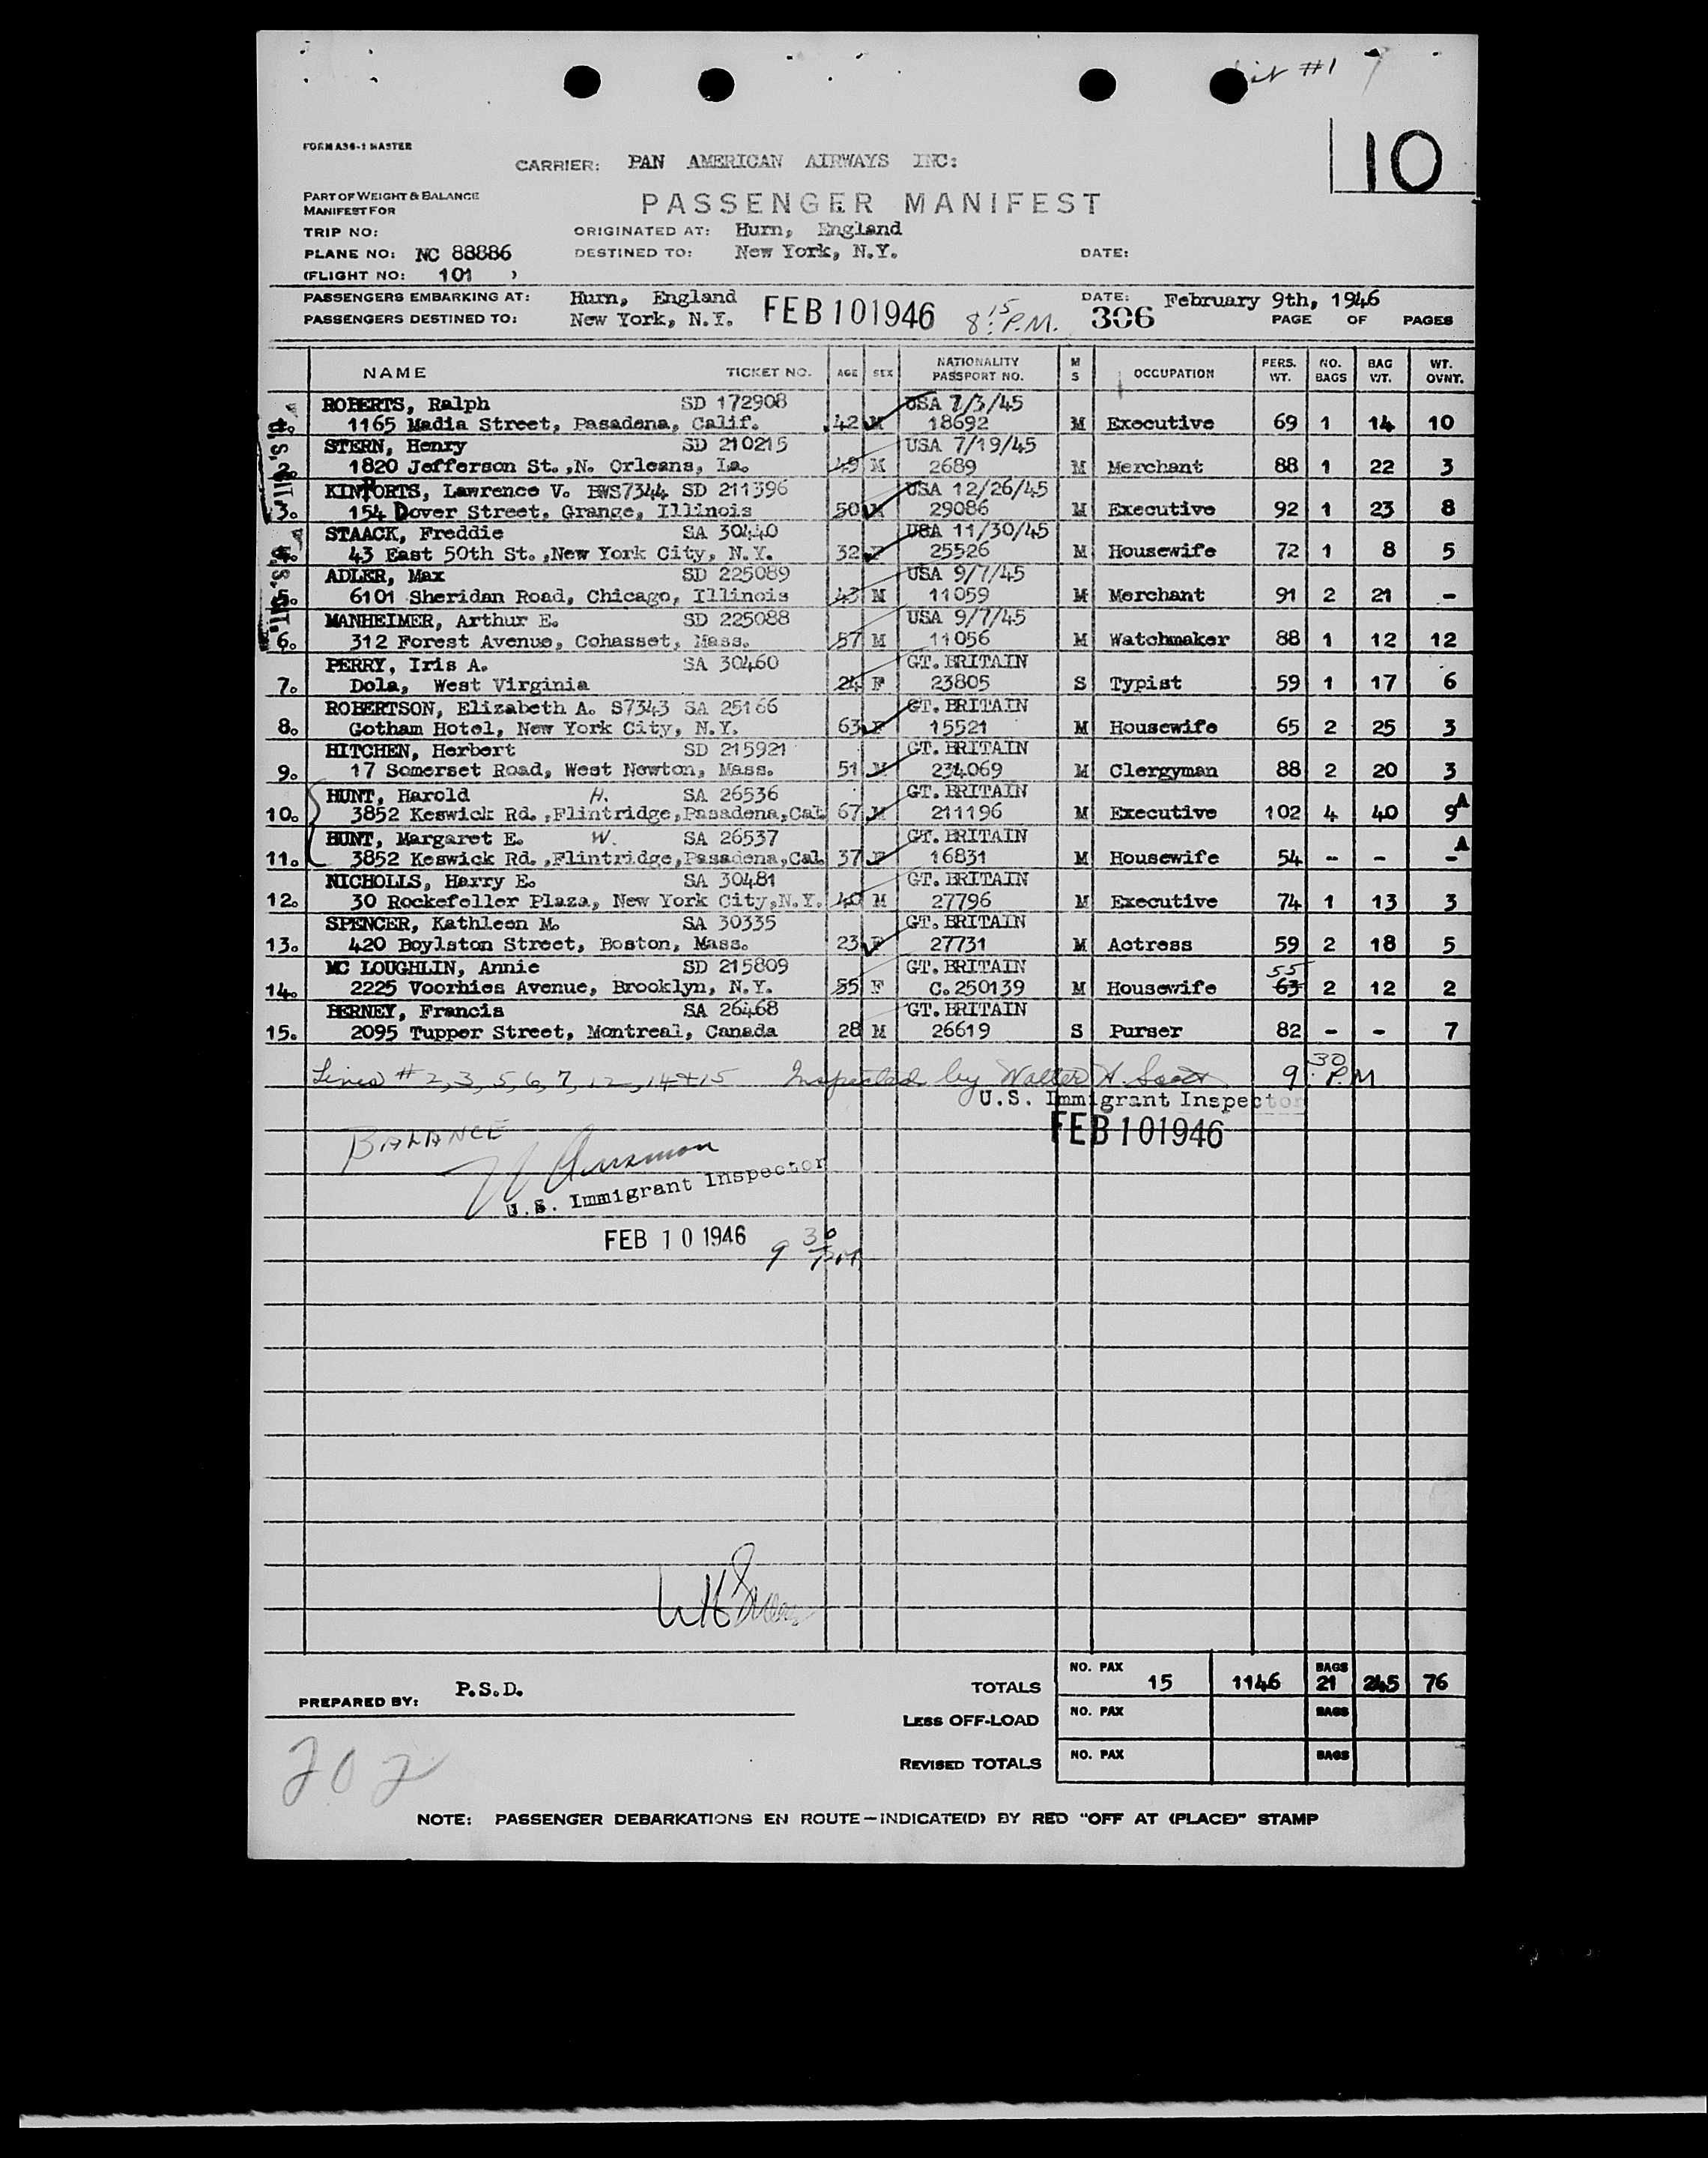 #1
10
FORM A36-1 MASTER
CARRIER: PAN AMERICAN AIRWAYS INC:
PART OF WEIGHT & BALANCE
MANIFEST FOR
PASSENGER MANIFEST
TRIP NO: ORIGINATED AT: Hurn, England
PLANE NO: NC 88886 DESTINED TO: New York, N.Y. DATE:
(FLIGHT NO: 101 )
PASSENGERS EMBARKING AT: Hurn, England DATE: February 9th, 1946
PASSENGERS DESTINED TO: New York, N.Y. FEB 10 1946 8:15 P.M. 306 PAGE OF PAGES
NAME TICKET NO. AGE SEX NATIONALITY PASSPORT NO. M S OCCUPATION PERS. WT. NO. BAGS BAG WT. WT. OVNT.
ROBERTS, Ralph SD 172908 USA 7/3/45
1165 Madia Street, Pasadena, Calif. 42 M 18692 M Executive 69 1 14 10
STERN, Henry SD 210215 USA 7/19/45
2. 1820 Jefferson St.,N. Orleans, La. 49 M 2689 M Merchant 88 1 22 3
KINPORTS, Lawrence V. BWS7344 SD 211396 USA 12/26/45
3. 154 Dover Street, Grange, Illinois 50 M 29086 M Executive 92 1 23 8
STAACK, Freddie SA 30440 USA 11/30/45
4. 43 East 50th St.,New York City, N.Y. 32 F 25526 M Housewife 72 1 8 5
ADLER, Max SD 225089 USA 9/7/45
5. 6101 Sheridan Road, Chicago, Illinois 43 M 11059 M Merchant 91 2 21 -
MANHEIMER, Arthur E. SD 225088 USA 9/7/45
6. 312 Forest Avenue, Cohasset, Mass. 57 M 11056 M Watchmaker 88 1 12 12
PERRY, Iris A. SA 30460 GT. BRITAIN
7. Dola, West Virginia 24 F 23805 S Typist 59 1 17 6
ROBERTSON, Elizabeth A. S7343 SA 25166 GT. BRITAIN
8. Gotham Hotel, New York City, N.Y. 63 F 15521 M Housewife 65 2 25 3
HITCHEN, Herbert SD 215921 GT. BRITAIN
9. 17 Somerset Road, West Newton, Mass. 51 M 234069 M Clergyman 88 2 20 3
HUNT, Harold H. SA 26536 GT. BRITAIN
10. 3852 Keswick Rd.,Flintridge,Pasadena,Cal. 67 M 211196 M Executive 102 4 40 9 A
HUNT, Margaret E. W. SA 26537 GT. BRITAIN
11. 3852 Keswick Rd.,Flintridge,Pasadena,Cal. 37 F 16831 M Housewife 54 - - - A
NICHOLLS, Harry E. SA 30481 GT. BRITAIN
12. 30 Rockefeller Plaza, New York City,N.Y. 40 M 27796 M Executive 74 1 13 3
SPENCER, Kathleen M. SA 30335 GT. BRITAIN
13. 420 Boylston Street, Boston, Mass. 23 F 27731 M Actress 59 2 18 5
MC LOUGHLIN, Annie SD 215809 GT. BRITAIN 55
14. 2225 Voorhies Avenue, Brooklyn, N.Y. 55 F C.250139 M Housewife 63 2 12 2
BERNEY, Francis SA 26468 GT. BRITAIN
15. 2095 Tupper Street, Montreal, Canada 28 M 26619 S Purser 82 - - 7
Lines # 2, 3, 5, 6, 7, 12, 14 + 15 Inspected by Walter H. 9:30 P.M
U.S. Immigrant Inspector
FEB 10 1946
BALANCE
U.S. Immigrant Inspector
FEB 10 1946 9 30
NO. PAX BAGS
TOTALS 15 1146 21 245 76
PREPARED BY: P.S.D.
LESS OFF-LOAD NO. PAX BAGS
REVISED TOTALS NO. PAX BAGS
202
NOTE: PASSENGER DEBARKATIONS EN ROUTE—INDICATE(D) BY RED "OFF AT (PLACE)" STAMP